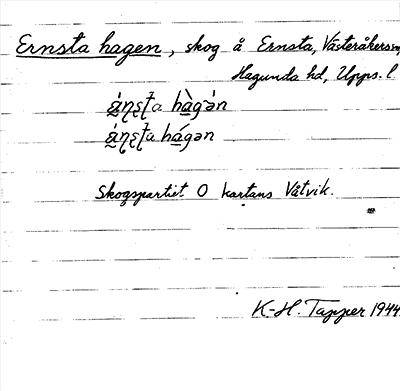 Ernsta hagen, skog å Ernsta, Västeråkers sn,
Hagunda hd, Upps. l.
hàgən
hágən
Skogspartiet O kartans Våtvik.
K-H. Tapper 1944